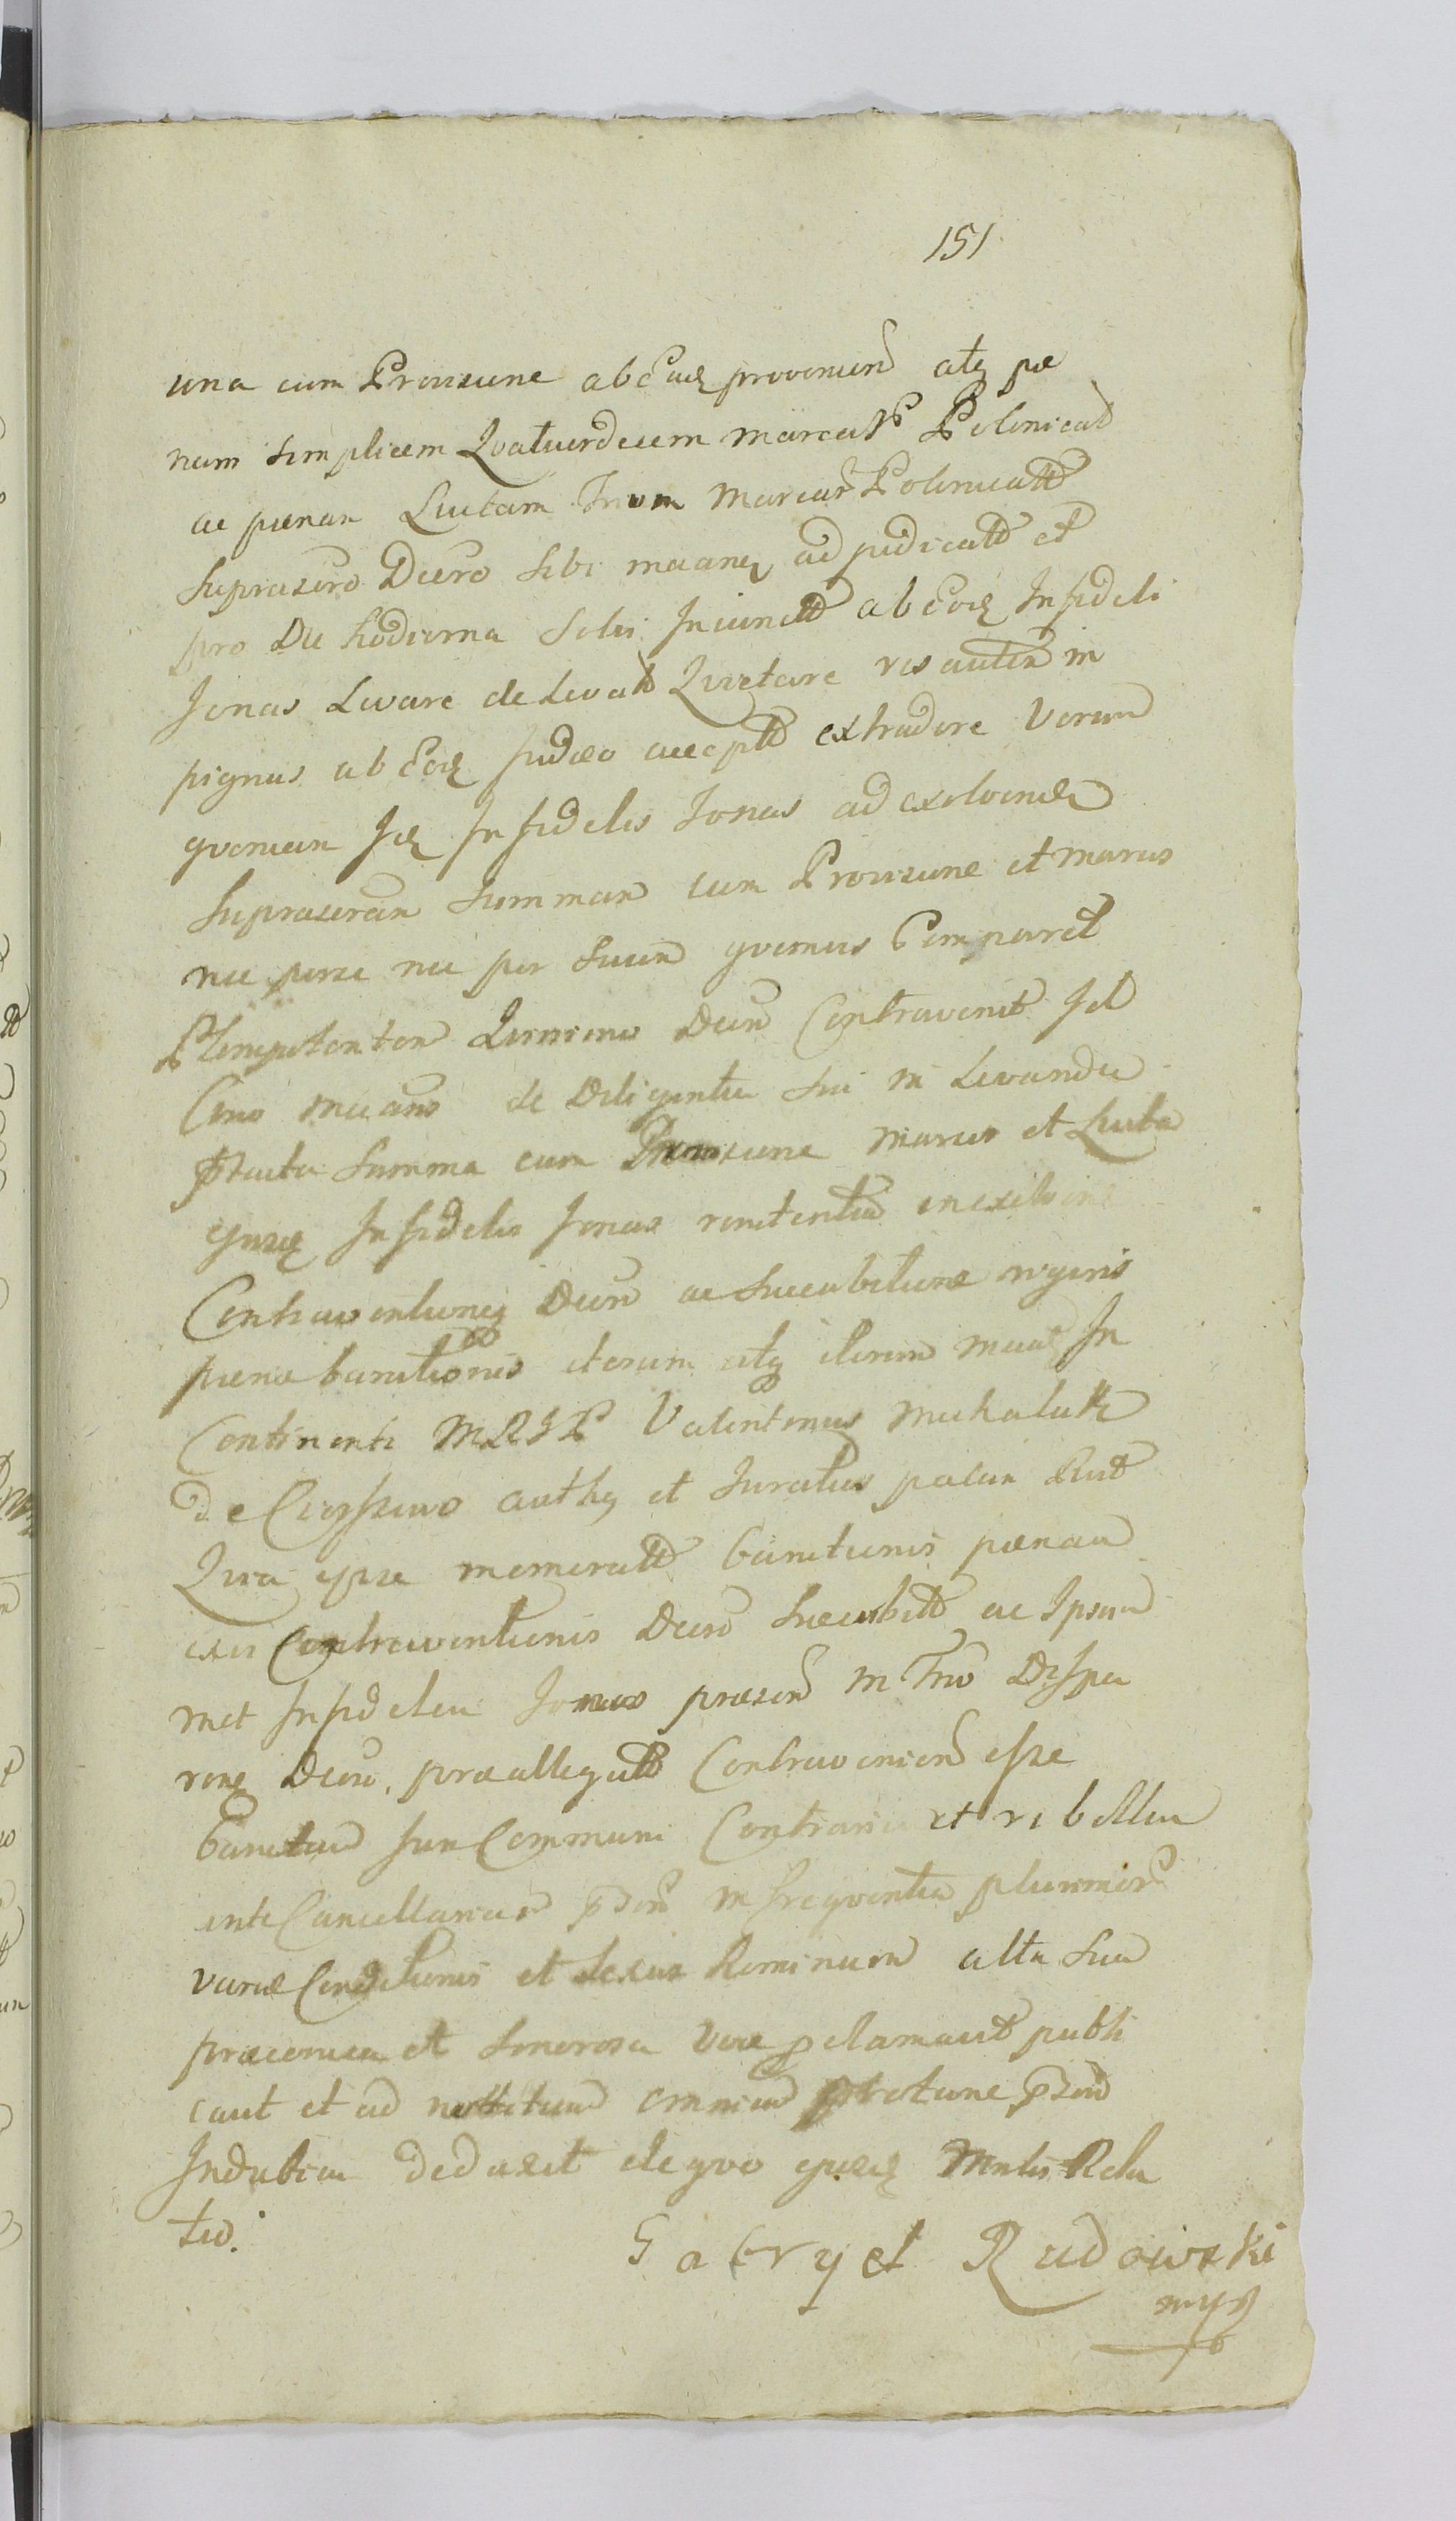 151
una cum Provisione ab Eadẽ provenien atq pæ
nam simplicem Quatuordecem marcar Polonical
ac pænam Luitam Trium Marcar Polonicall
Suprascro Decro sibi meanq adjudicatt et
pro Die hodierna Solvi Injunctt ab Eodẽ Infideli
Jonas Levare de Levatt Quietare res autem in
pignus ab Eodẽ Judæo acceptt extradere Verum
quoniam Idẽ Infidelis Jonas ad exolvend
Suprascram Summam cum Provisione et Marcis
nec per se nec per Suum quemvis Comparet
Plenipotenten Quinimo Decro Contravenit Id
Circo means de Diligentia sui in Levanda
præscripta Summa cum Provisione Marcis et Luita
Ejusdẽ Infidelis Jonas renitentia in exolvend
Contraventioneq Decro ac Succubitione vigoris
pænæ banitionis iterum atq iterum meavit In
Continenti MRGP Valentinus Michalak
de Ciosszewo authq et Juratus palam Rlut
Quia ipse memoratt banitionis pænam
ex vi Contraventionis Decro Succubitt ac Ipsum
met Infidelem Jonas præsen in Trno Dispa
rene Decro præallegatt Contravenien esse
banitum Juri Communi Contrarium et rebellem
ante Cancellariam præsen in frequentia plurimor
variæ Conditionis et Sexus Hominum alta Sua
præconica et Sonorosa Voce proclamavit publi
cavit et ad nottitiam omnium præsen
Indubiam deduxit de quo Ejusdẽ Mnlis Rela
tio.
Gabryel Rudowski
mpp